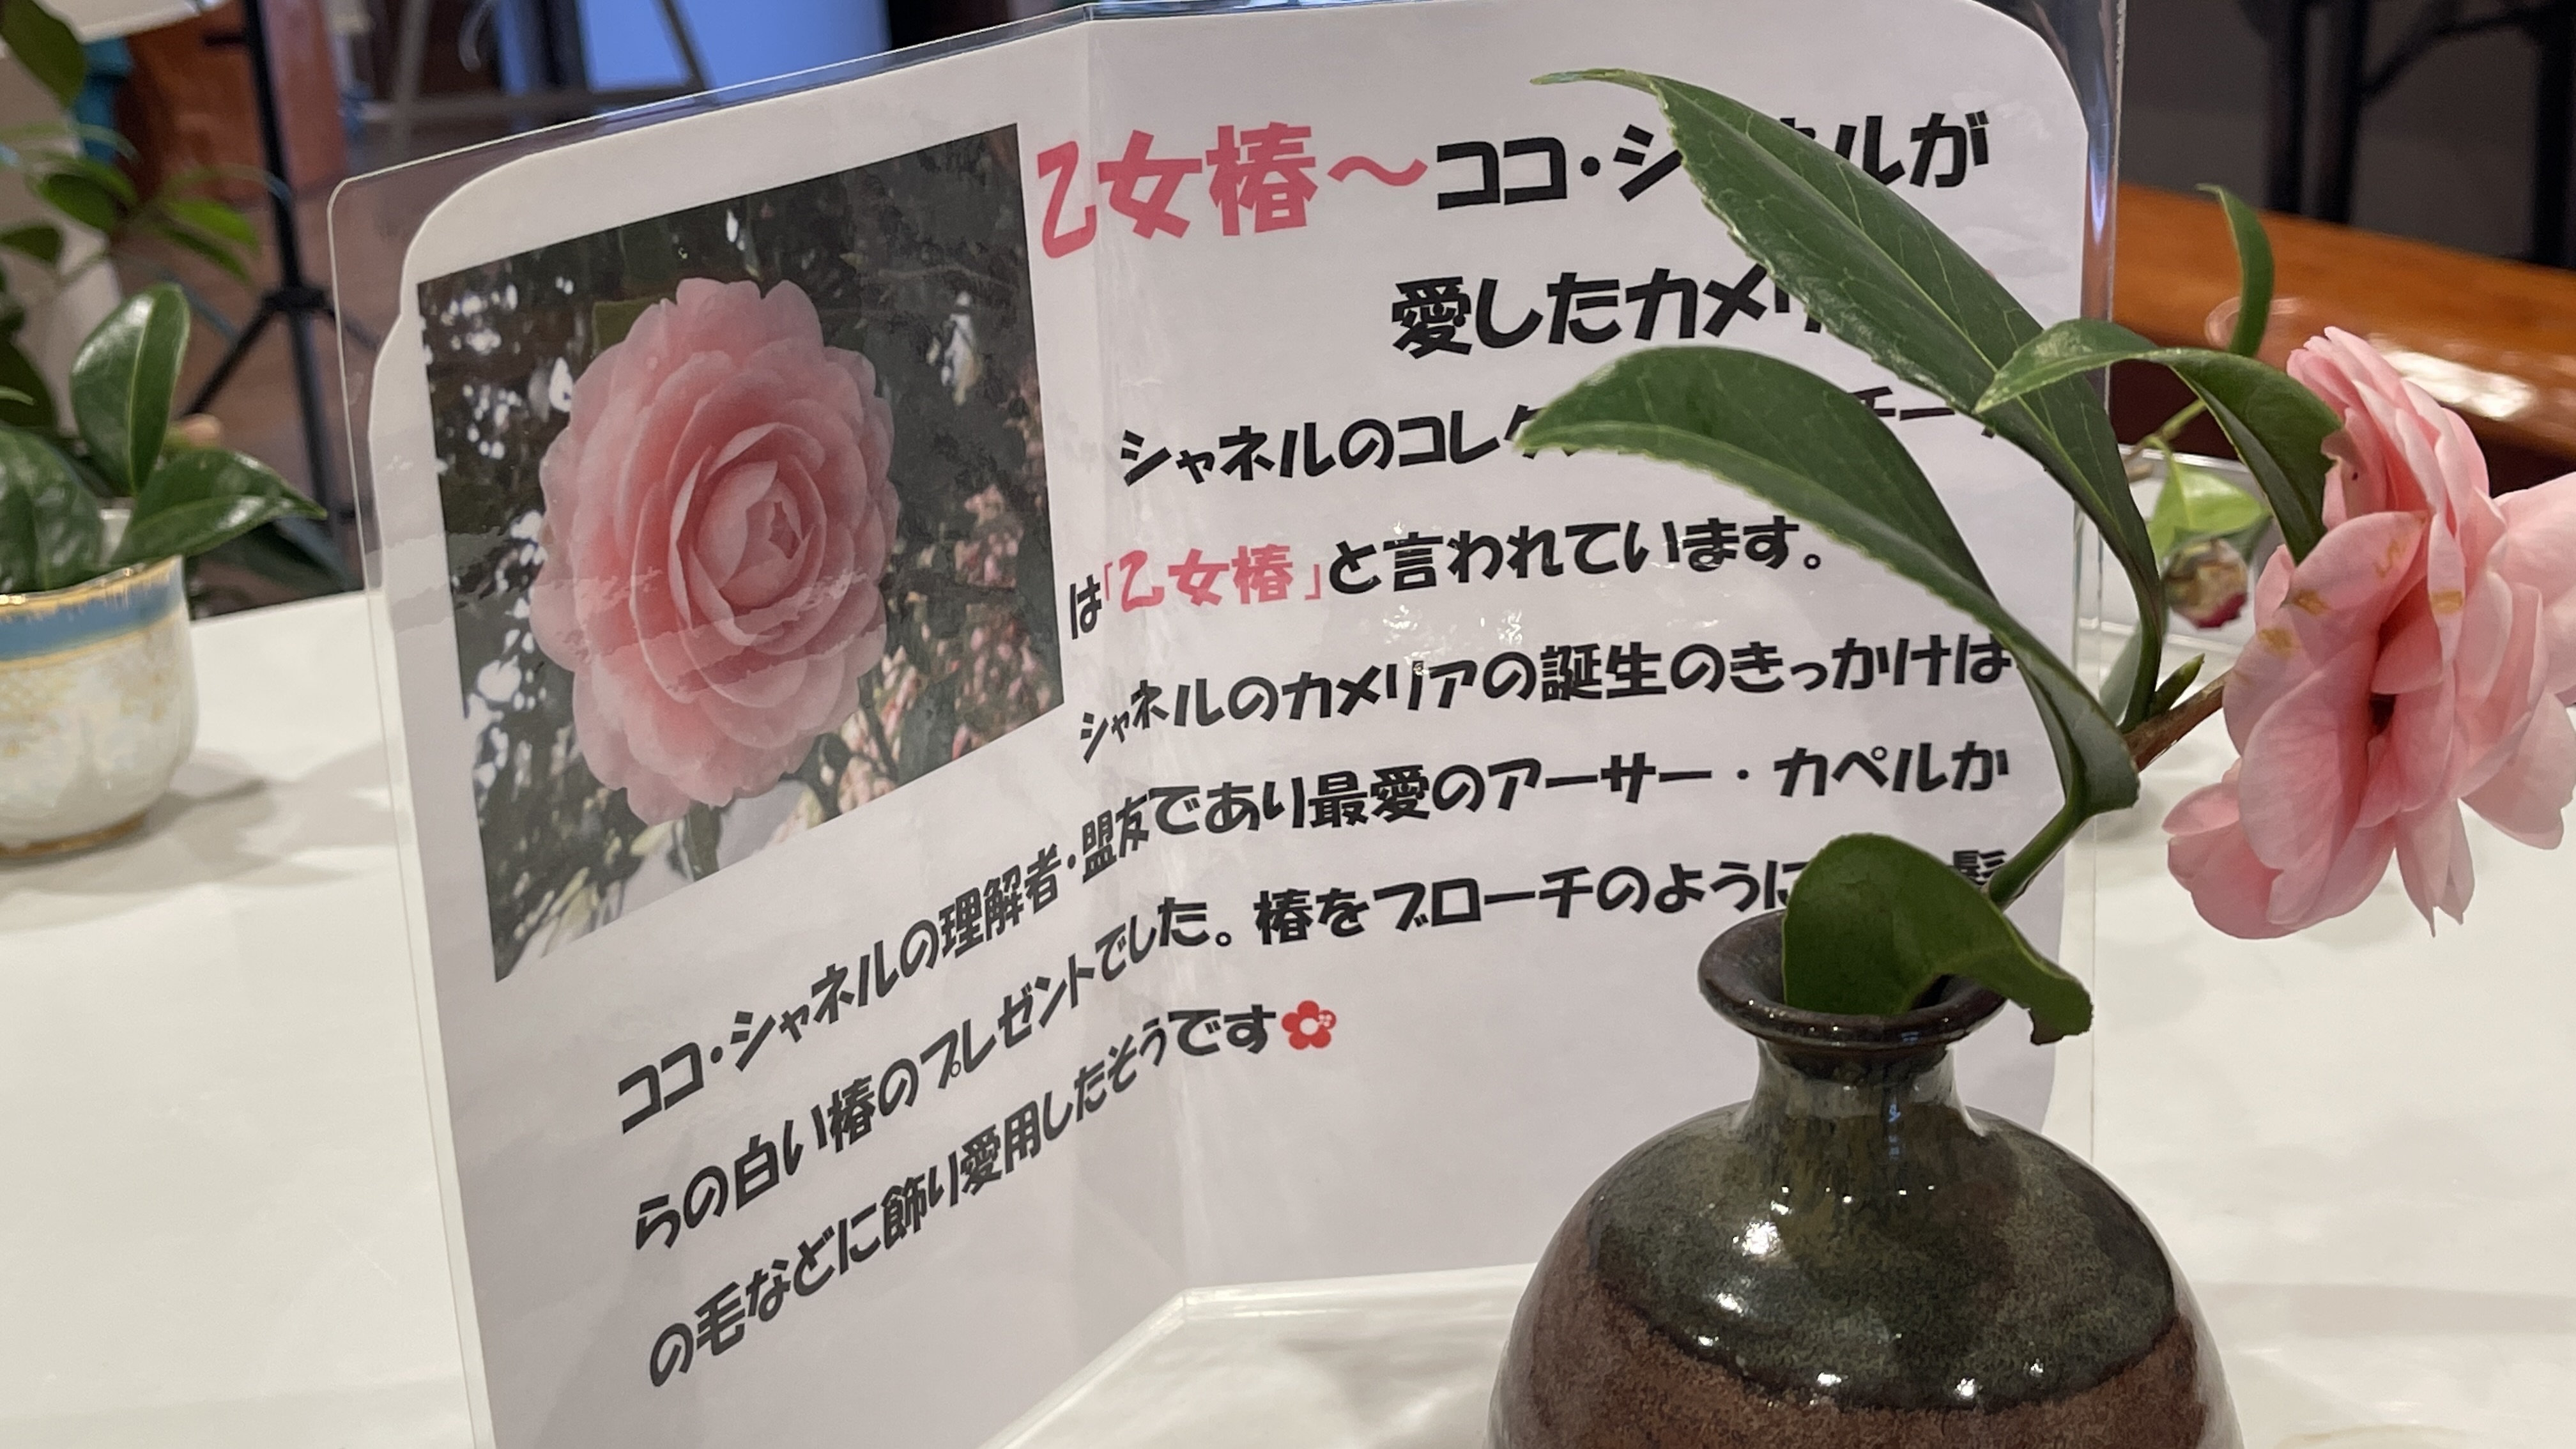 乙女椿～ココ・シャネルが
愛したカメリ
シャネルのコレク チー
は「乙女椿」と言われています。
シャネルのカメリアの誕生のきっかけは
ココ・シャネルの理解者・盟友であり最愛のアーサー・カペルか
らの白い椿のプレゼントでした。椿をブローチのように 髪
の毛などに飾り愛用したそうです